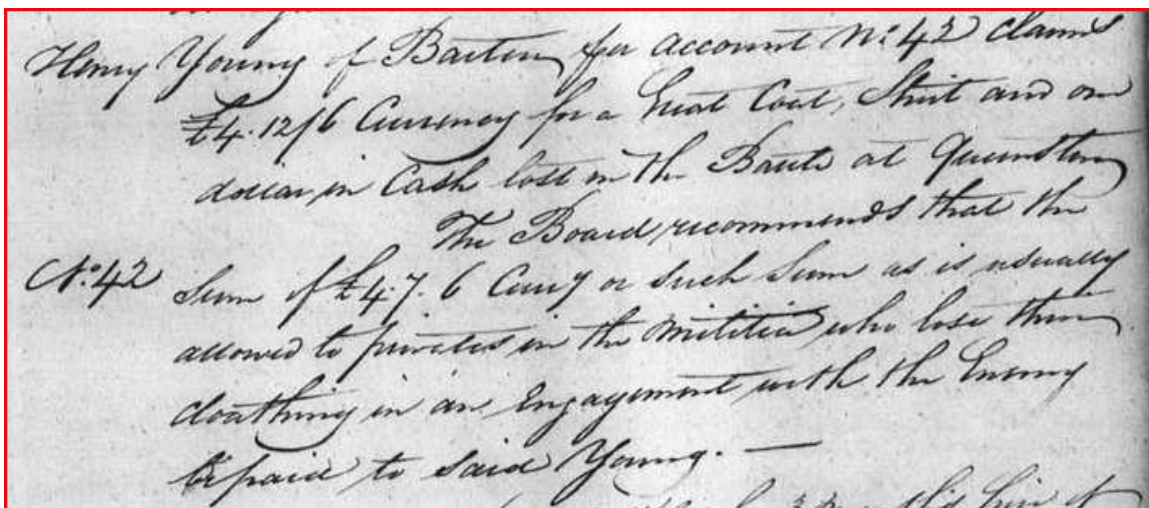 Henry Young of Barton per account No: 42 claims
£4.12/6 Currency for a Great Coat, Shirt and one
dollar in Cash lost in the Battle at Queenston
The Board recommends that the
No. 42
Sum of £4.7.6 Curry or such Sum as is usually
allowed to privates in the Militia who lose their
cloathing in an Engagement with the Enemy
be paid to said Young. —